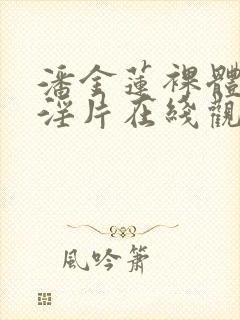 潘金蓮裸體
淫片在綫觀
風吟簫